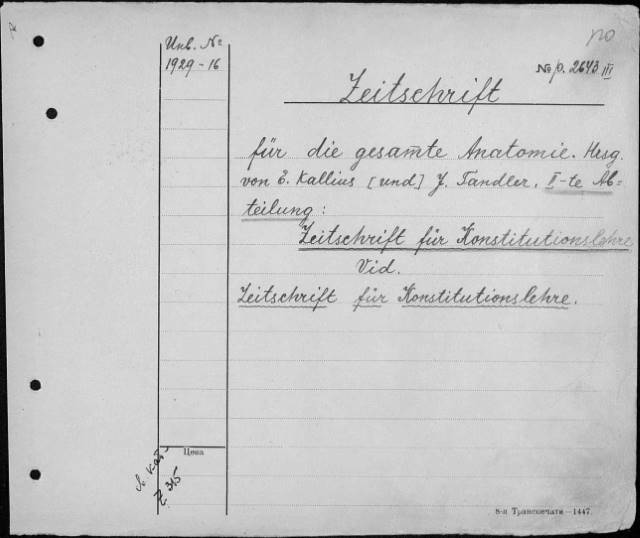 Инв. №
1929-16
№ p. 2643 III
Zeitschrift
für die gesamte Anatomie. Hrsg.
von E. Kallius [und] J. Tandler. II-te Ab=
teilung:
Zeitschrift für Konstitutionslehre
Vid.
Zeitschrift für Konstitutionslehre.
Цена
Z 315
8-я Транспечати—1447.